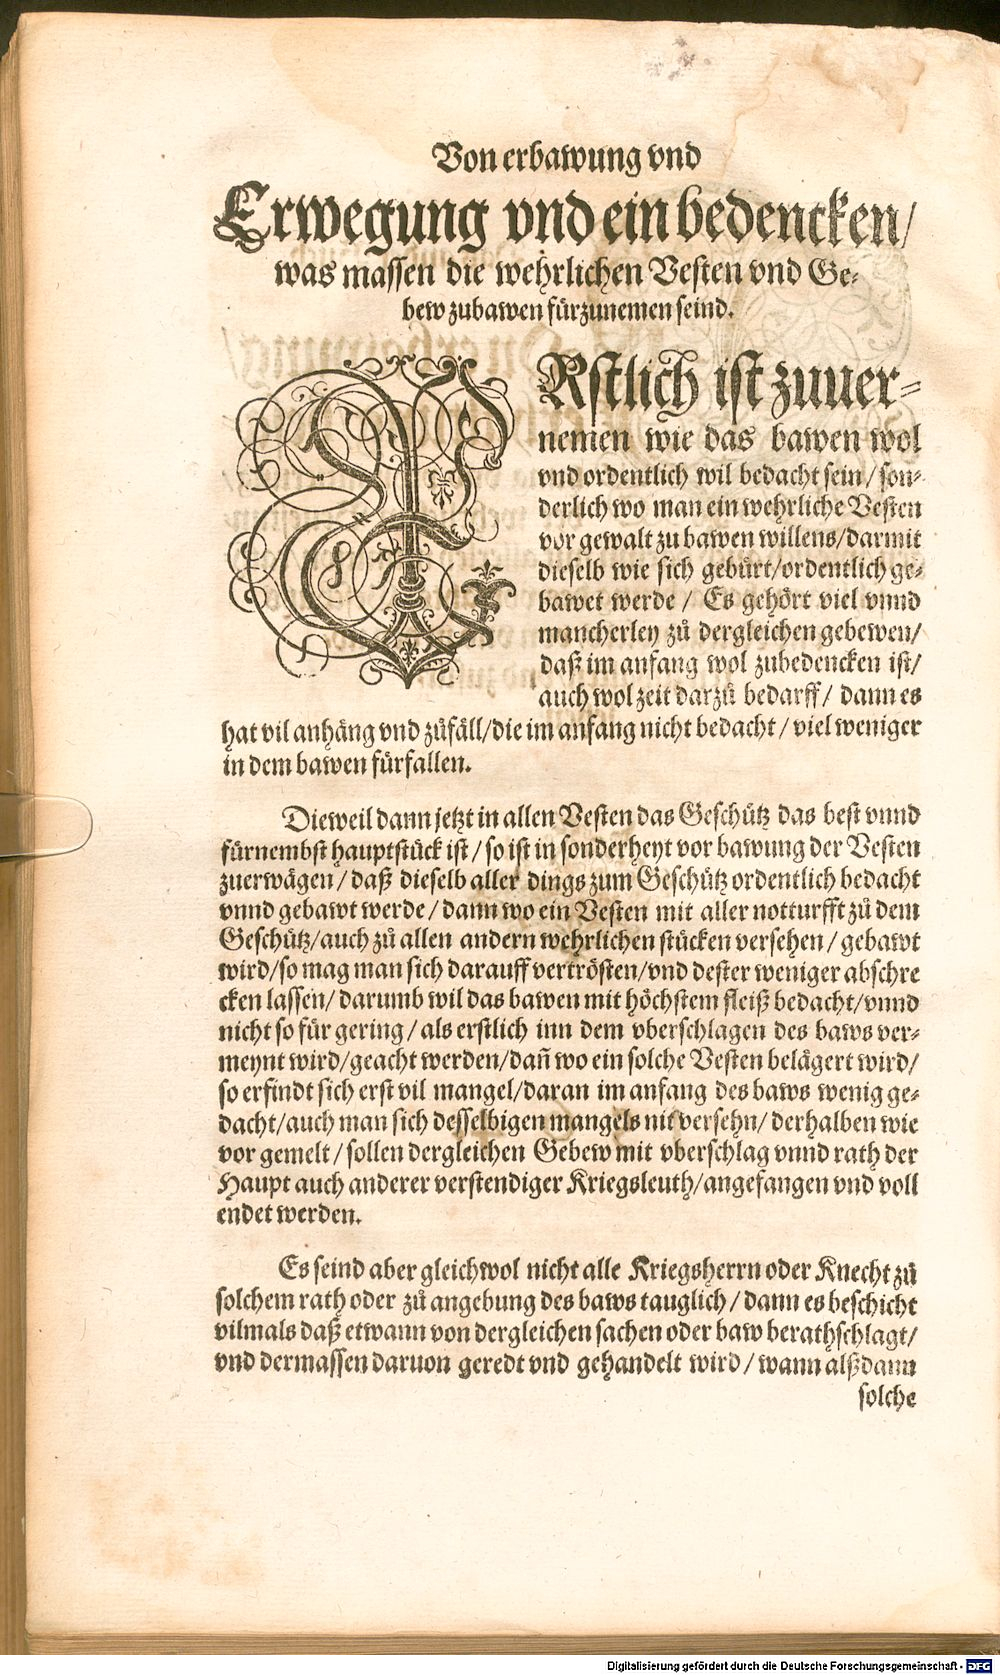 Von erbawung vnd
Erwegung vnd ein bedencken/
was massen die wehrlichen Vesten vnd Ge-
bew zubawen fürzunemen seind.
ERstlich ist zuuer-
nemen wie das bawen wol
vnd ordentlich wil bedacht sein/ son-
derlich wo man ein wehrliche Vesten
vor gewalt zu bawen willens/darmit
dieselb wie sich gebürt/ordentlich ge-
bawet werde / Es gehört viel vnnd
mancherley zů dergleichen gebewen/
daß im anfang wol zubedencken ist/
auch wol zeit darzů bedarff/ dann es
hat vil anhäng vnd zůfäll/die im anfang nicht bedacht / viel weniger
in dem bawen fürfallen.
Dieweil dann jetzt in allen Vesten das Geschütz das best vnnd
fürnembst hauptstück ist / so ist in sonderheyt vor bawung der Vesten
zuerwägen / daß dieselb aller dings zum Geschütz ordentlich bedacht
vnnd gebawt werde / dann wo ein Vesten mit aller notturfft zů dem
Geschütz/auch zů allen andern wehrlichen stücken versehen / gebawt
wird/so mag man sich darauff vertrösten/vnd dester weniger abschre
cken lassen/ darumb wil das bawen mit höchstem fleiß bedacht/vnnd
nicht so für gering / als erstlich inn dem vberschlagen des baws ver-
meynt wird/geacht werden/dañ wo ein solche Vesten belägert wird/
so erfindt sich erst vil mangel/daran im anfang des baws wenig ge-
dacht/auch man sich desselbigen mangels nit versehn/ derhalben wie
vor gemelt / sollen dergleichen Gebew mit vberschlag vnnd rath der
Haupt auch anderer verstendiger Kriegsleuth/angefangen vnd voll
endet werden.
Es seind aber gleichwol nicht alle Kriegsherrn oder Knecht zů
solchem rath oder zů angebung des baws tauglich / dann es beschicht
vilmals daß etwann von dergleichen sachen oder baw berathschlagt/
vnd dermassen daruon geredt vnd gehandelt wird / wann alßdann
solche
Digitalisierung gefördert durch die Deutsche Forschungsgemeinschaft - DFG